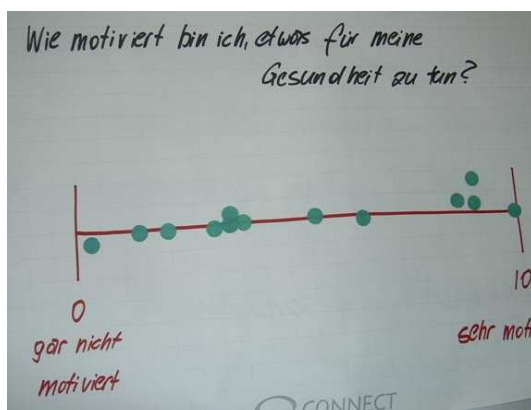 Wie motiviert bin ich, etwas für meine
Gesundheit zu tun?
0
10
gar nicht
motiviert
sehr moti
CONNECT